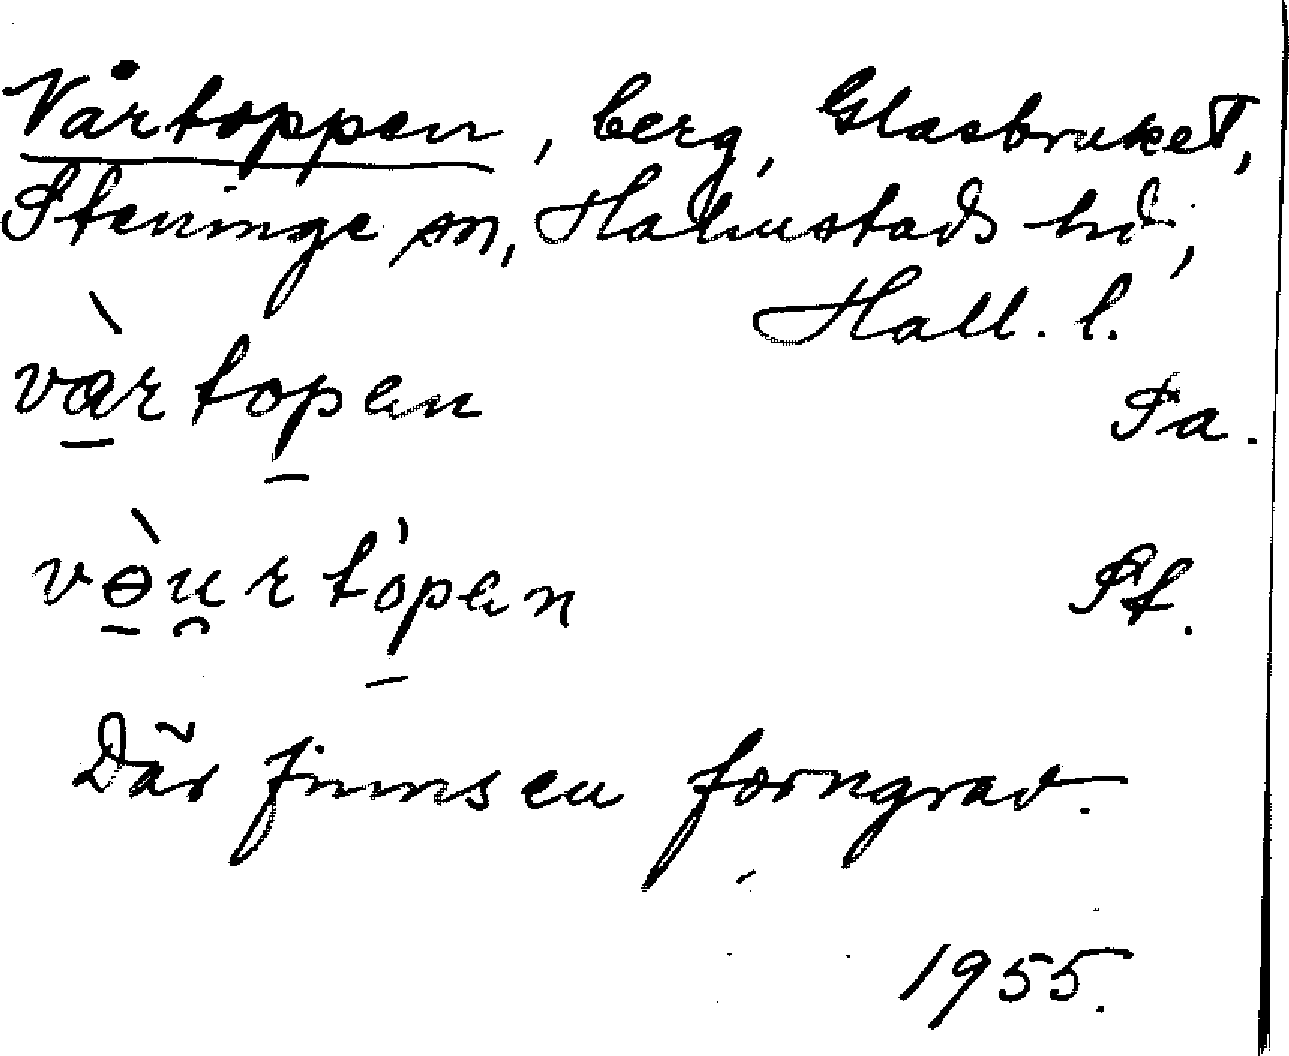 Vårtoppen, berg, Glasbruket,
Steninge sn, Halmstads hd,
Hall. l.
vɑ̀rtop̱en Sa.
vө̀u̯rtóp̱en St.
Där finns en forngrav.
1955.